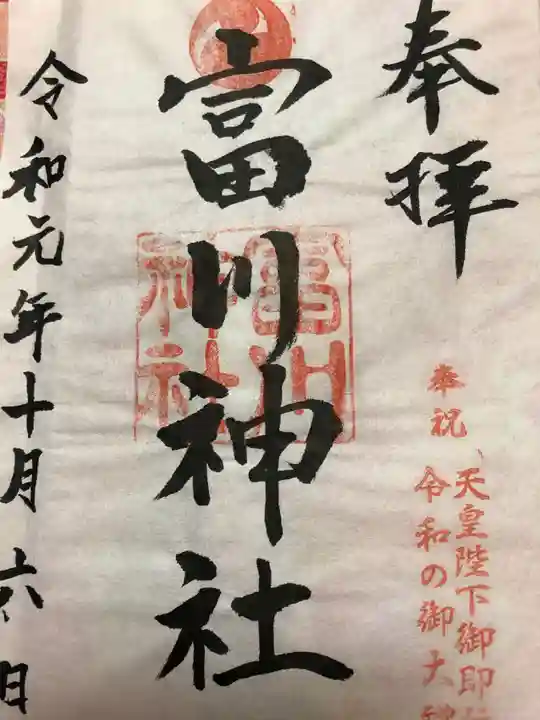 奉拝
奉祝
天皇陛下御即
令和の御大
富川神社
富川神社
令和元年十月六日